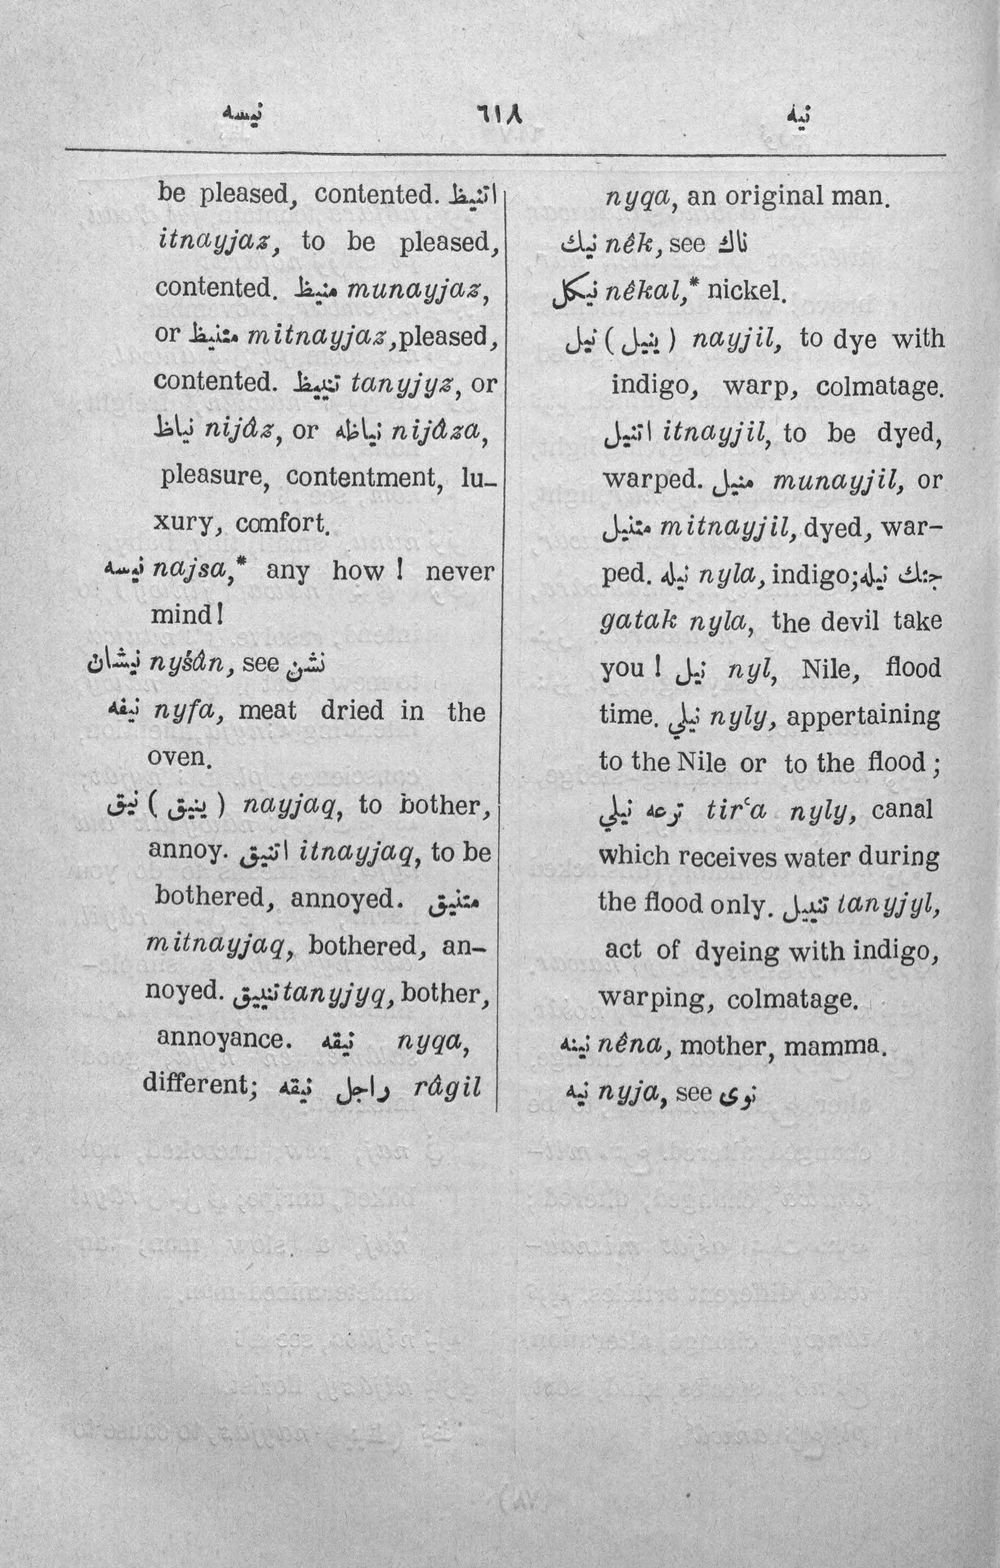 نيسه ٦١٨ نيه
be pleased, contented. اتنيظ
itnayjaz, to be pleased,
contented. منيظ munayjaz,
or متنيظ mitnayjaz, pleased,
contented. تنييظ tanyjyz, or
نياظ nijâz, or نياظه nijâza,
pleasure, contentment, lu-
xury, comfort.
نيسه najsa,* any how ! never
mind!
نيشان nyšân, see نشن
نيفه nyfa, meat dried in the
oven.
نيق ( ينيق ) nayjaq, to bother,
annoy. اتنيق itnayjaq, to be
bothered, annoyed. متنيق
mitnayjaq, bothered, an-
noyed. تنييق tanyjyq, bother,
annoyance. نيقه nyqa,
different; راجل نيقه râgil
nyqa, an original man.
نيك nêk, see ناك
نيكل nêkal,* nickel.
نيل ( ينيل ) nayjil, to dye with
indigo, warp, colmatage.
اتنيل itnayjil, to be dyed,
warped. منيل munayjil, or
متنيل mitnayjil, dyed, war-
ped. نيله nyla, indigo; جتك نيله
gatak nyla, the devil take
you ! نيل nyl, Nile, flood
time. نيلي nyly, appertaining
to the Nile or to the flood ;
ترعه نيلي tirʿa nyly, canal
which receives water during
the flood only. تنييل tanyjyl,
act of dyeing with indigo,
warping, colmatage.
نينه nêna, mother, mamma.
نيه nyja, see نوى